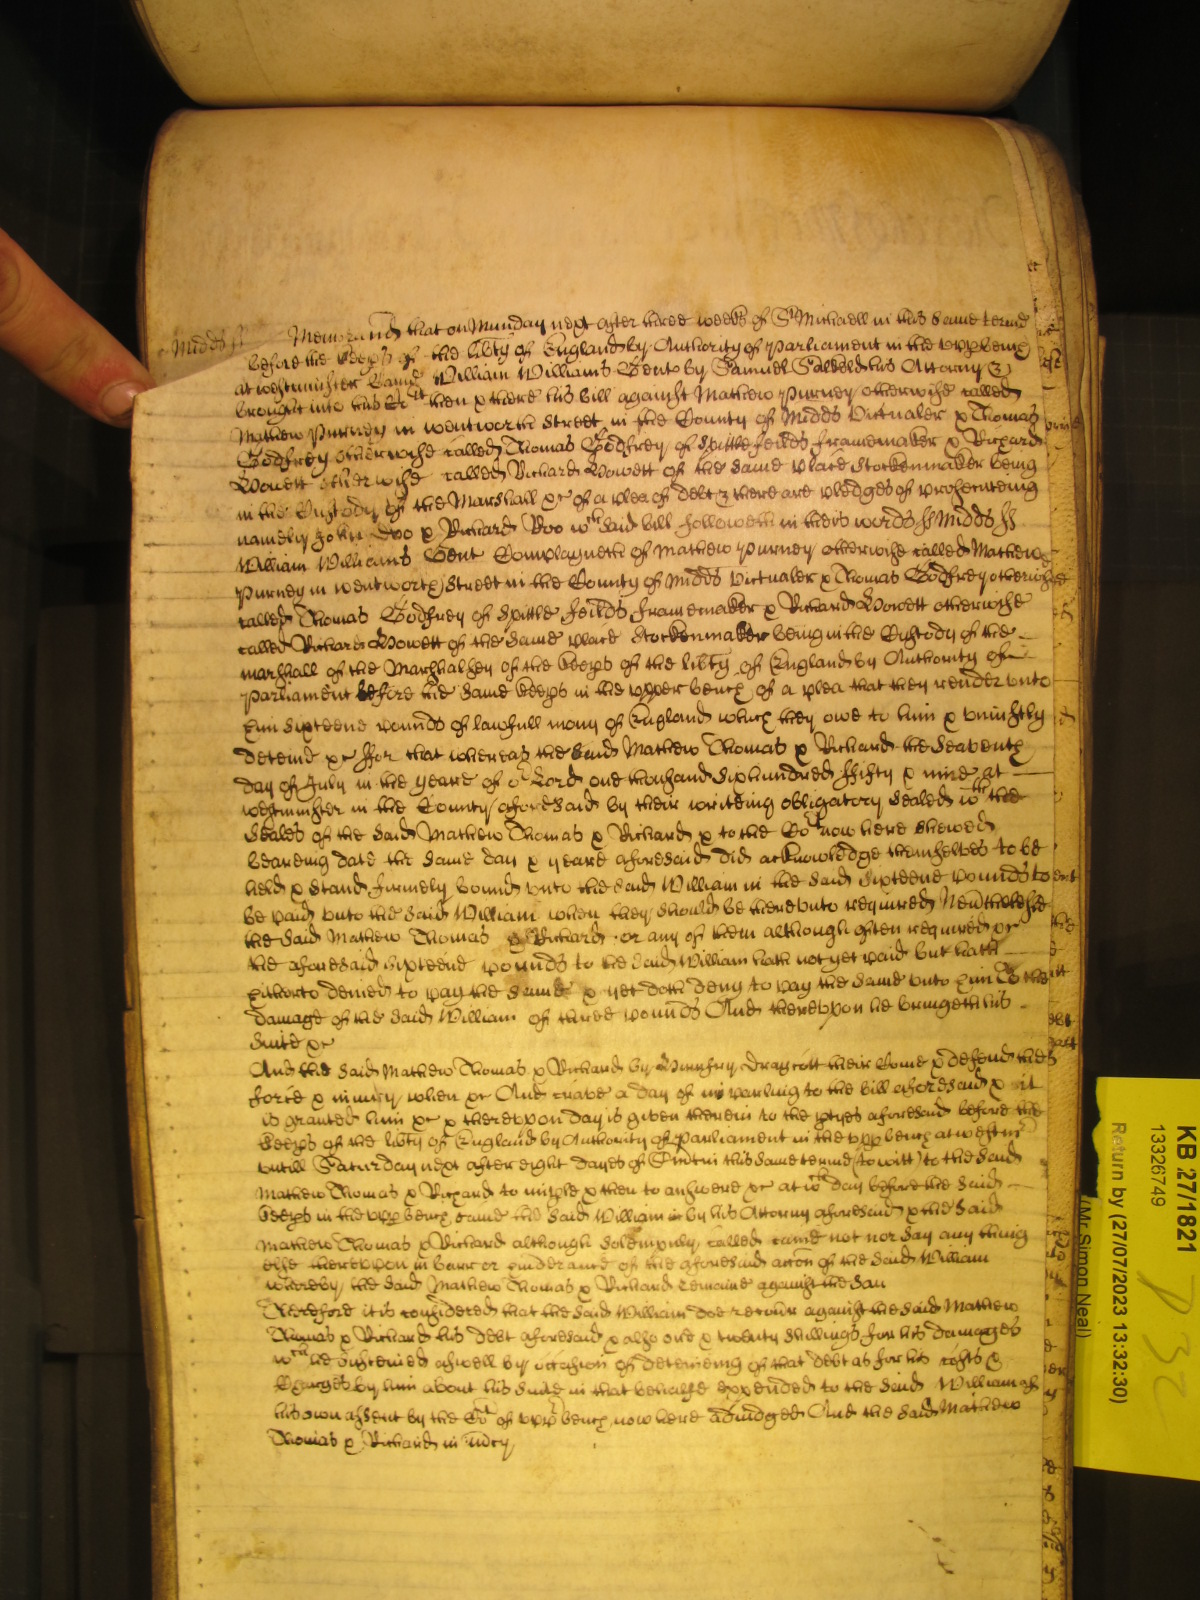 Midds ss Memorand that on Munday next after three weeks of St Michaell in this same terme
before the keeps of the libty of England by Authority of Parliament in the upp bench
at westminster Came William Williams Gent by Samuel his Attorny &
brought into this Cot then & there his bill against Mathew Purney otherwise called
Mathew Purney in wentworth Street in the County of Midds Victualer & Thomas
Godfrey otherwise called Thomas Godfrey of Spittle feilds framemaker & Richard
Howett otherwise called Richard Howett of the same place Stockenmaker being
in the Custody of the Marshall &c of a plea of debt & there are pledges of prosecuteing
namely John Doo & Richard Roo wch said bill followeth in theis words ss Midds ss
William Williams Gent Complayneth of Mathew Purney otherwise called Mathew
Purney in wentworth Street in the County of Midds Victualer & Thomas Godfrey otherwise
called Thomas Godfrey of Spittle feilds framemaker & Richard Howett otherwise
called Richard Howett of the same place Stockenmaker being in the Custody of the
marshall of the Marshalsey of the keeps of the libty of England by Authority of
Parliament before the same keeps in the upper bench of a plea that they render unto
him sixteene pounds of lawfull mony of England which they owe to him & uniustly
deteine &c ffor that whereas the said Mathew Thomas & Richard the seaventh
day of July in the yeare of or Lord one thousand sixhundred ffifty & nine at
westminster in the County aforesaid by their writeing obligatory sealed wth the
seales of the said Mathew Thomas & Richard & to the Cot now here shewed
beareing date the same day & yeare aforesaid did acknowledge themselves to be
held & stand firmely bound unto the said William in the said sixteene pounds to
be paid unto the said William when they should be thereunto required Nevtheless
the said Mathew Thomas & Richard or any of them although often required &c
the aforesaid sixteene pounds to the said William hath not yet paid but hath
hitherto denied to pay the same & yet doth deny to pay the same unto him To the
damage of the said William of three pounds And thereupon he bringeth his
suite &c
And the said Mathew Thomas & Richard by Humfry Draycott their Come & defend the
force & iniury when &c And crave a day of imparling to the bill aforesaid & it
is granted him &c & thereupon day is given therein to the ptyes aforesaid before the
keeps of the libty of England by Authority of Parliament in the upp bench at westmr
untill Saturday next after eight dayes of St this same terme (to witt) to the said
Mathew Thomas & Richard to imple & then to answere &c at wch day before the said
keeps in the upp bench came the said William by his Attorny aforesaid & the said
Mathew Thomas & Richard although solempnly called came not nor say any thing
else thereupon in barr or hinderance of the aforesaid accon of the said William
whereby the said Mathew Thomas & Richard remaine against the said
Therefore it is considered that the said William doe recover against the said Mathew
Thomas & Richard his debt aforesaid & also one & twenty shillings for his damages
wch he susteined aswell by occasion of deteineing of that debt as for his costs &
Charges by him about his suite in that behalfe expended to the said William of
his own assent by the Cot of upp bench now here adiudged And the said Mathew
Thomas & Richard in mcy
KB 27/1821
13326749
Return by (27/07/2023 13:32:30)
(Mr Simon Neal)